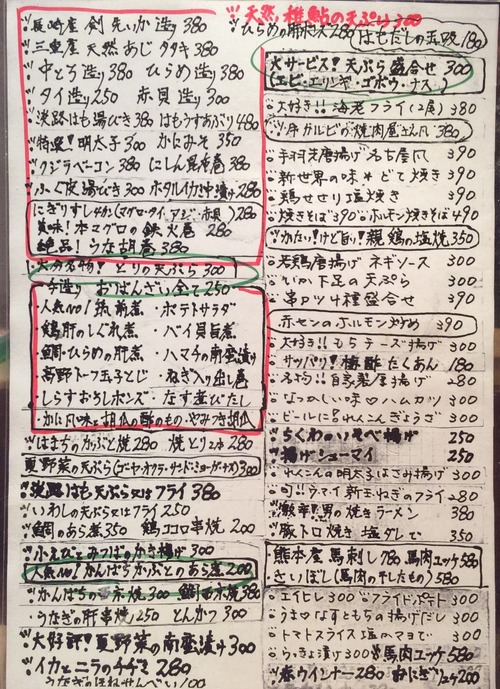 天然稚鮎の天ぷら300
長崎産 剣先いか造り 380
三重産 天然あじタタキ 380
中とろ造り 380 ひらめ造り 380
タイ造り 250 赤貝造り 300
淡路はも湯びき 380 はもうすあぶり 480
特選!明太子 300 かにみそ 350
クジラベーコン 380 にしん昆布巻 380
ふぐ皮湯びき 300 ホタルイカ沖漬け 280
にぎりすし4カン(マグロ・タイ・アジ・赤貝)
美味!本マグロの鉄火巻 280
絶品!うな胡巻 380
大分名物!とりの天ぷら 300
手造り おばんざい全て250
・人気NO!筑前煮 ・ポテトサラダ
・鶏肝のしぐれ煮 ・バイ貝旨煮
・鯛・ひらめの肝煮 ・ハマチの南蛮漬け
・高野トーフ玉子とじ ・ねぎ入り出し巻
・しらすおろしポンズ ・なす煮びたし
・かに風味と胡瓜の酢のもの ・やみつき胡瓜
はまちのかぶと焼 280 焼とり2本 280
夏野菜の天ぷら 300
淡路はも天ぷら又はフライ 380
いわしの天ぷら又はフライ 250
鯛のあら煮 350 鶏ココロ串焼 200
小えびとみつばのかき揚げ 300
人気NO!かんぱちかぶとのあら煮 200
うなぎの肝串焼 250 とんかつ 300
大好評!夏野菜の南蛮漬け 300
イカとニラのチヂミ 280
うなぎのほねせんべい 100
はもだしの玉吸 180
大サービス!天ぷら盛合せ 300
(エビ・エリンギ・ゴボウ・ナス)
大好き!!海老フライ(2尾) 380
牛カルビの焼肉屋さん風 380
手羽先唐揚げ名古屋風 390
新世界の味 どて焼き 390
鶏せせり塩焼き 390
焼きそば 390 ホルモン焼きそば 490
かたい!けど旨い!親鶏の塩焼 350
若鶏唐揚げ ネギソース 350
いか下足の天ぷら 300
串カツ4種盛合せ 390
赤センのホルモン炒め 390
大好き!!もちチーズ揚げ 300
サッパリ!梅酢たくあん 180
名物!!自家製厚揚げ 280
なつかしい味 ハムカツ 300
ビールに!!れんこんぎょうざ 300
ちくわのいそべ揚げ 250
揚げシューマイ 250
れんこんの明太子はさみ揚げ 300
旬!!ウマイ新玉ねぎのフライ 280
男の焼きラーメン 380
豚トロ焼き 塩ダレで 350
熊本屋 馬刺し 780 馬肉ユッケ 580
さいぼし(馬肉の干したもの) 580
エイヒレ 300 フライドポテト 300
うま なすともちの揚げだし 300
トマトスライス塩かマヨで 300
らっきょう漬け 300 馬肉ユッケ 580
赤ウインナー 280